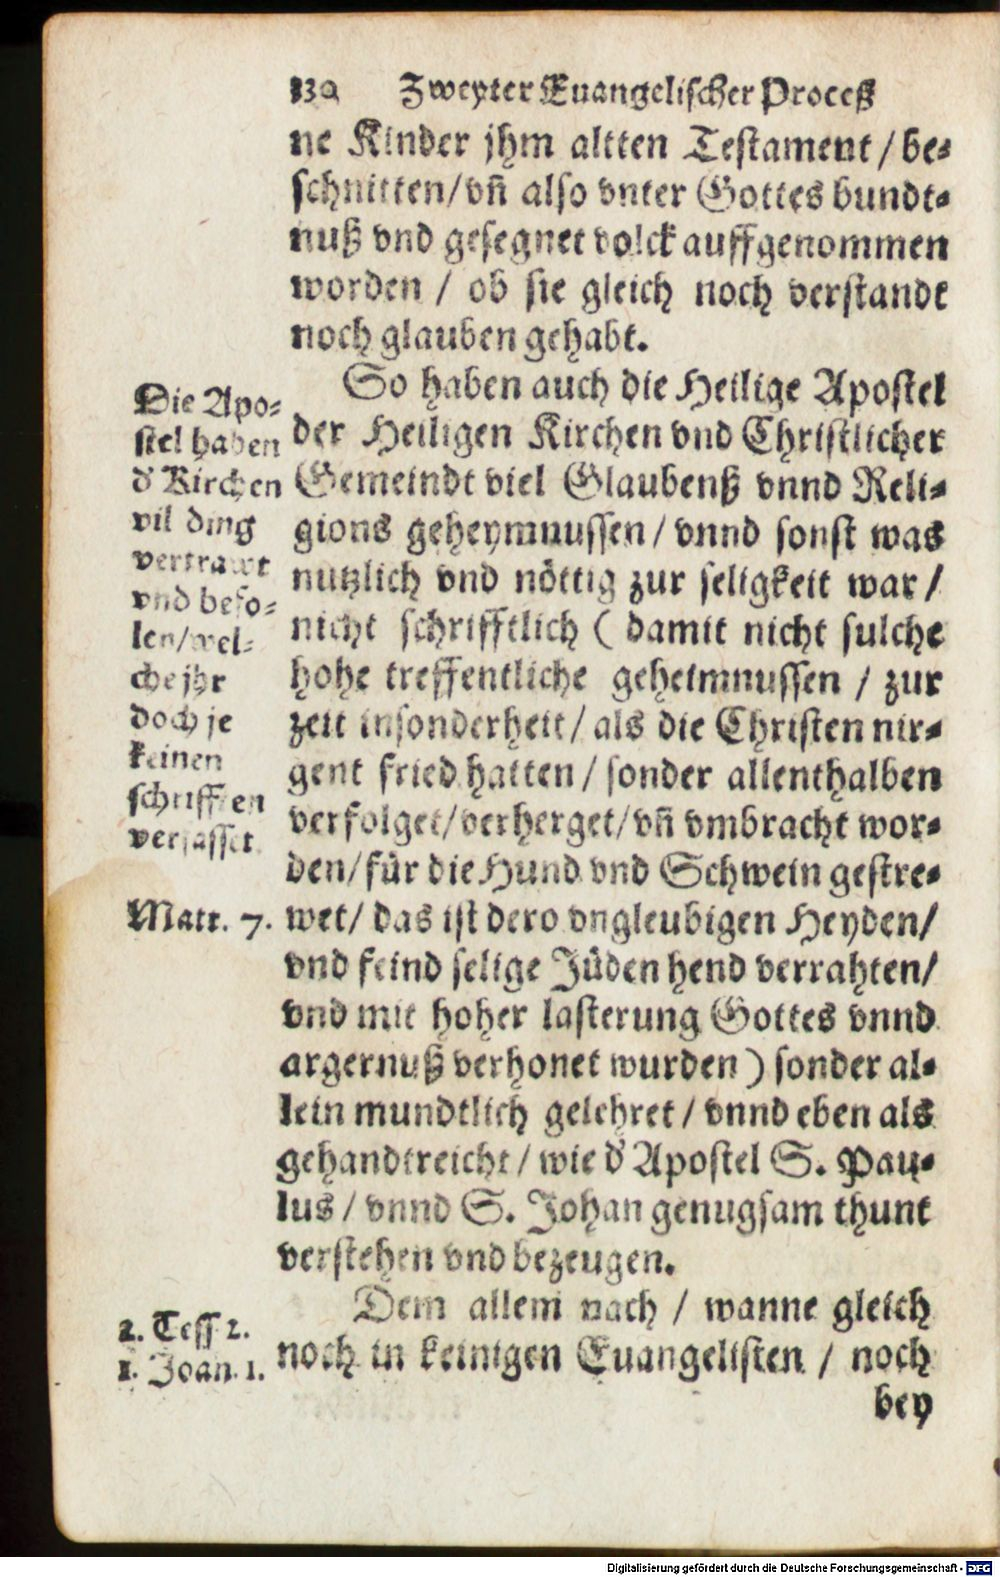 130 Zweyter Euangelischer Proceß
ne Kinder jhm altten Testament / be-
schnitten/vñ also vnter Gottes bundt-
nuß vnd gesegnet volck auffgenommen
worden / ob sie gleich noch verstandt
noch glauben gehabt.
So haben auch die Heilige Apostel
der Heiligen Kirchen vnd Christlicher
Gemeindt viel Glaubenß vnnd Reli-
gions geheymnussen / vnnd sonst was
nutzlich vnd nöttig zur seligkeit war /
nicht schrifftlich ( damit nicht sulche
hohe treffentliche geheimnussen / zur
zeit insonderheit / als die Christen nir-
gent fried hatten / sonder allenthalben
verfolget/verherget/vñ vmbracht wor-
den/für die Hund vnd Schwein gestre-
wet/ das ist dero vngleubigen Heyden/
vnd feind selige Jüden hend verrahten/
vnd mit hoher lasterung Gottes vnnd
argernuß verhonet wurden ) sonder al-
lein mundtlich gelehret / vnnd eben als
gehandtreicht / wie d' Apostel S. Pau-
lus / vnnd S. Johan genugsam thunt
verstehen vnd bezeugen.
Dem allem nach / wanne gleich
noch in keinigen Euangelisten / noch
bey
Die Apo-
stel haben
d' Kirchen
vil ding
vertrawt
vnd befo-
len/wel-
che jhr
doch je
keinen
schrifften
verfasset.
Matt. 7.
2. Tess 2.
1. Joan. 1.
Digitalisierung gefördert durch die Deutsche Forschungsgemeinschaft - DFG